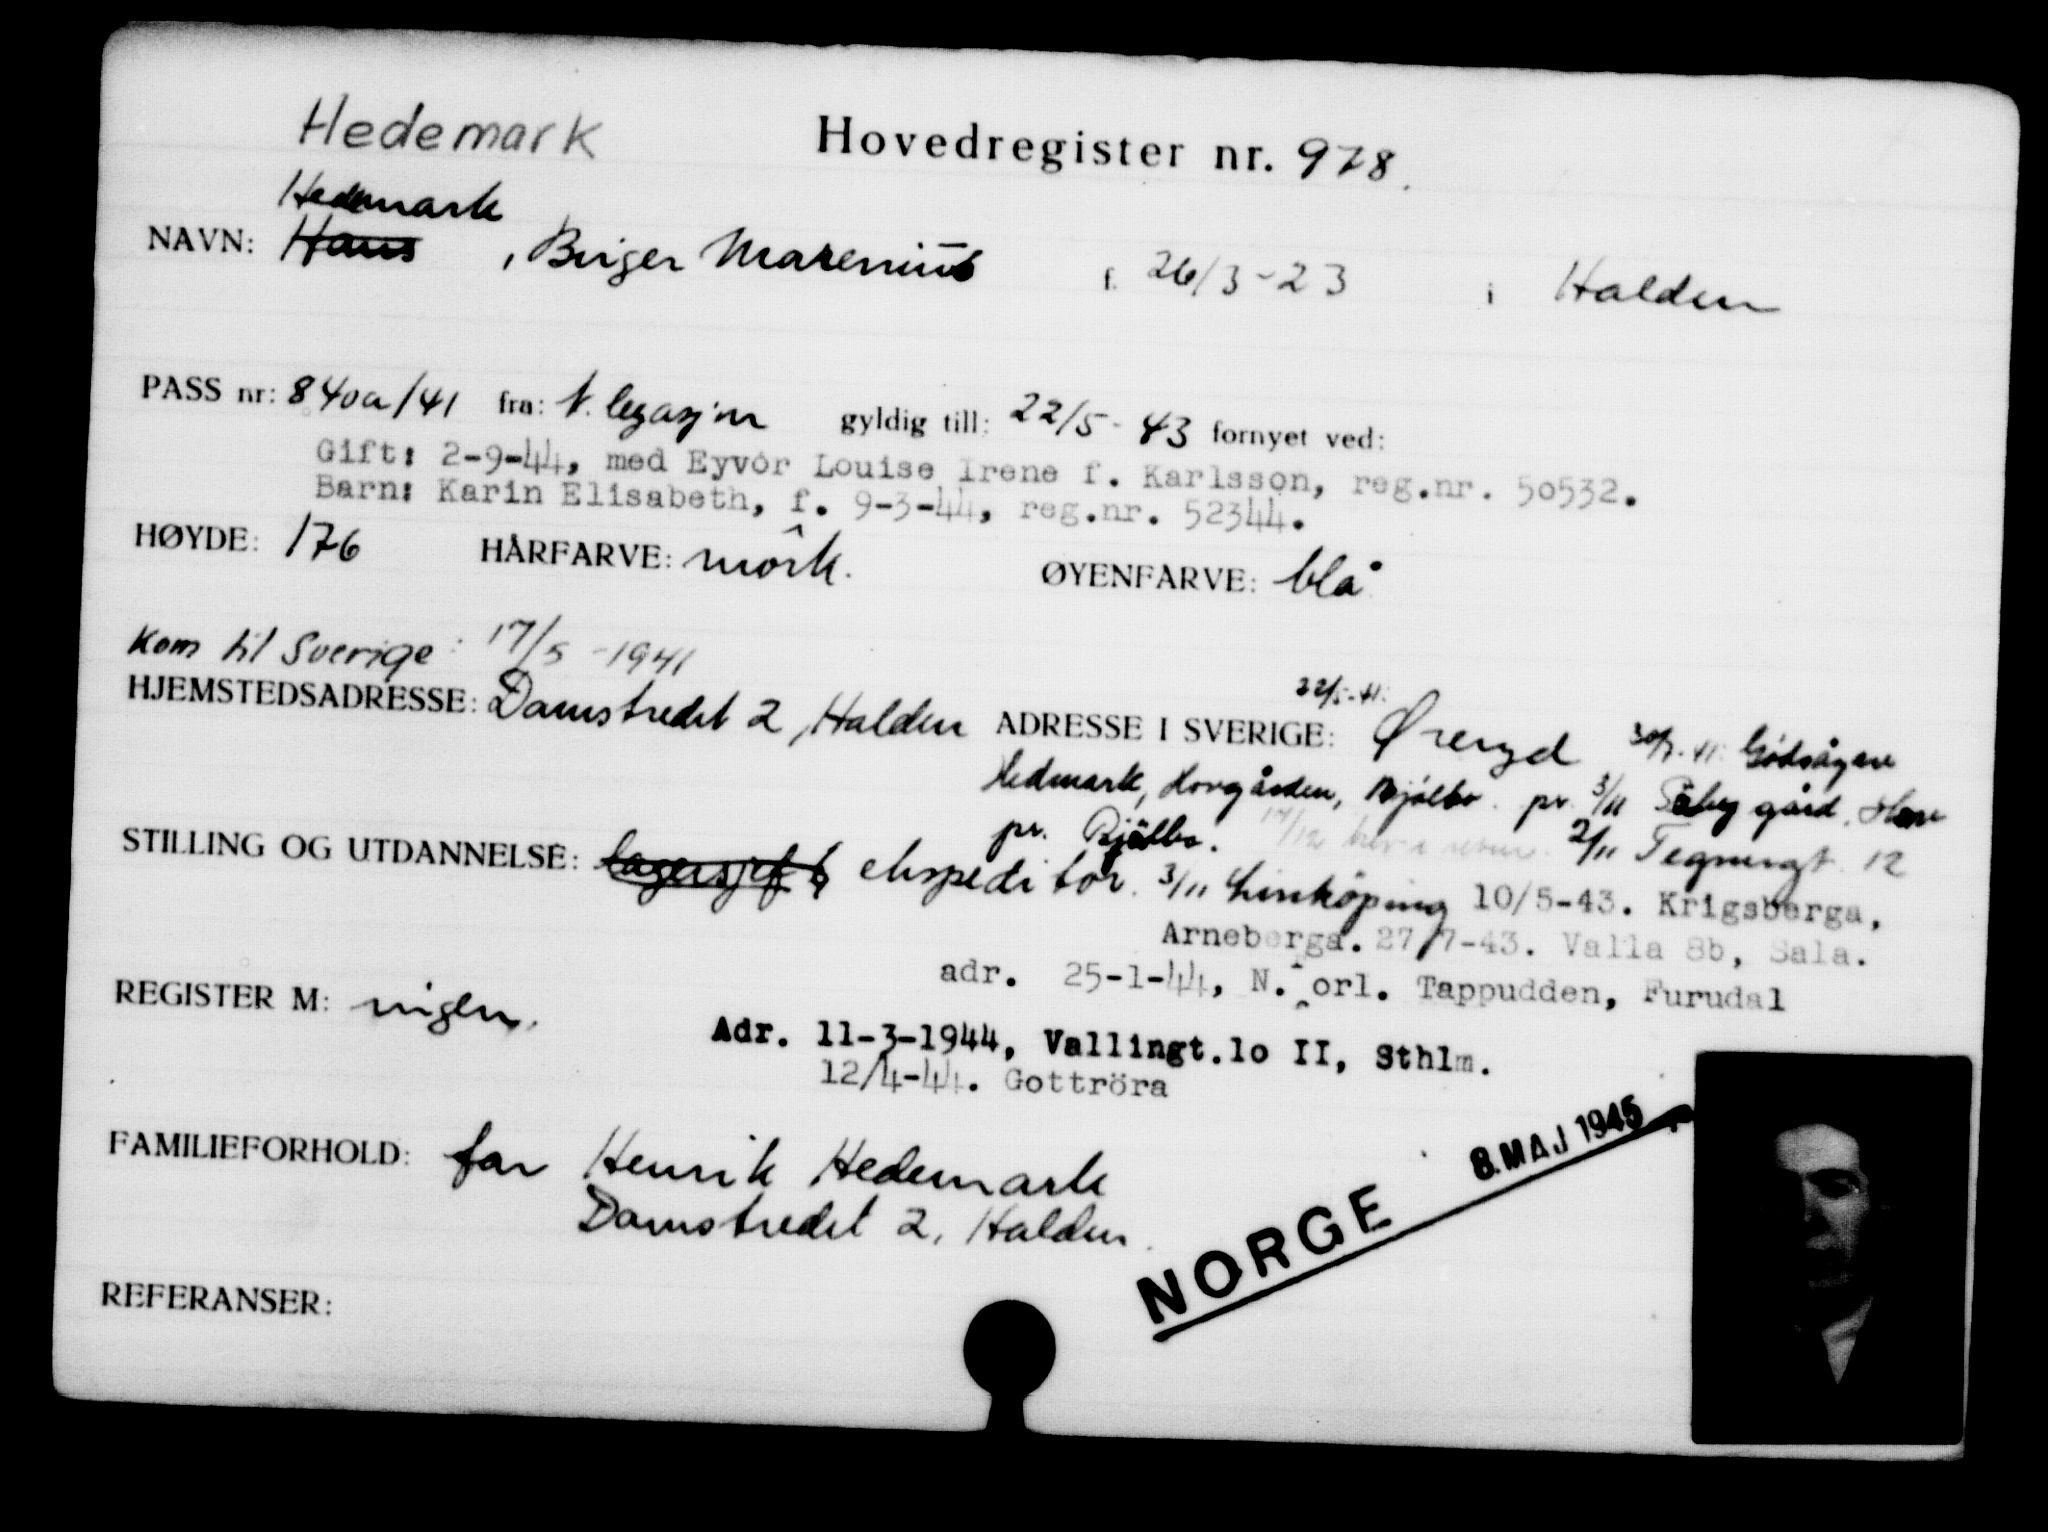 Hedemark Hovedregister nr. 978.
Hedemark
NAVN: Hans , Birger Marenius f. 26/3-23 i Halden
PASS nr: 840a/41 fra: N. legasjon gyldig till: 22/5-43 fornyet ved:
Gift: 2-9-44, med Eyvor Louise Irene f. Karlsson, reg.nr. 50532.
Barn: Karin Elisabeth, f. 9-3-44, reg.nr. 52344.
HØYDE: 176 HÅRFARVE: mörk. ØYENFARVE: blå
Kom til Sverige: 17/5-1941
22/5-41:
HJEMSTEDSADRESSE: Damstredet 2, Halden ADRESSE I SVERIGE: Øreryd 30/7-41: Godsägare
Hedmark, Horgården, Bjälbo. pr. 3/11 Säby gård,
pr. Bjälbo. 17/12 2/11 Tegnérgt. 12
STILLING OG UTDANNELSE: lagersjef ekspeditör. 3/11 Linköping 10/5-43. Krigsberga,
Arneberga. 27/7-43. Valla 8b, Sala.
adr. 25-1-44, N. orl. Tappudden, Furudal
REGISTER M: ingen.
Adr. 11-3-1944, Vallingt.10 II, Sthlm.
12/4-44. Gottröra
FAMILIEFORHOLD: far Henrik Hedemark
Damstredet 2, Halden.
NORGE 8. MAJ 1945
REFERANSER: